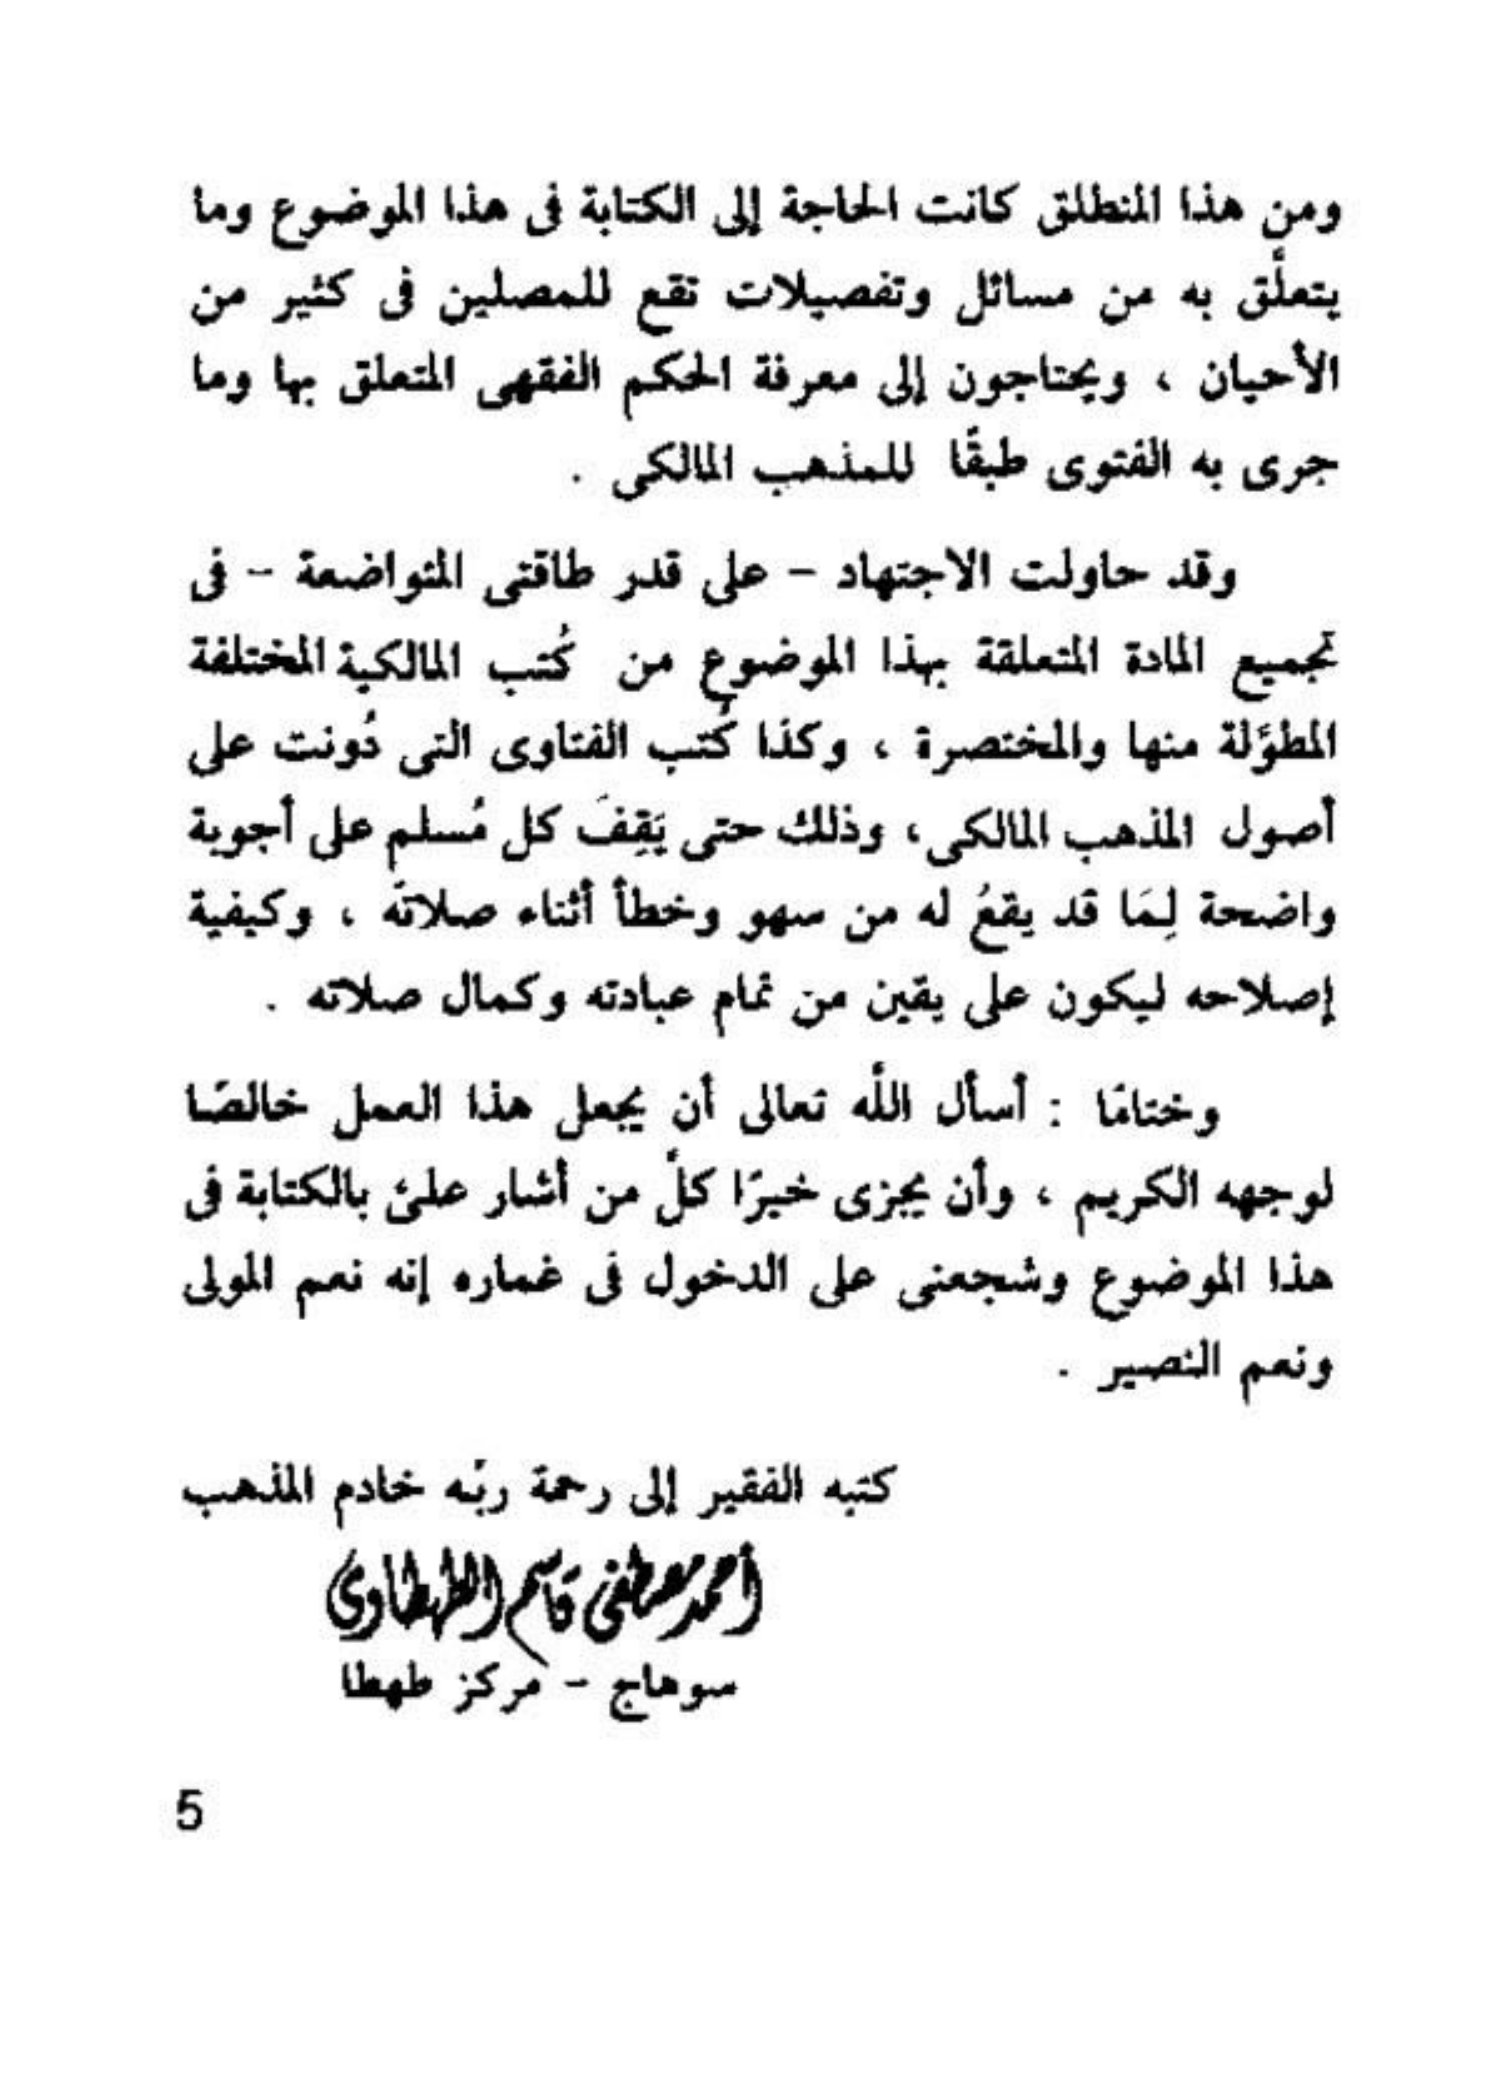 ومن هذا المنطلق كانت الحاجة إلى الكتابة فى هذا الموضوع وما
يتعلَّق به من مسائل وتفصيلات تقع للمصلين فى كثير من
الأحيان ، ويحتاجون إلى معرفة الحكم الفقهى المتعلق بها وما
جرى به الفتوى طبقًا للمذهب المالكى .
وقد حاولت الاجتهاد – على قدر طاقتى المتواضعة – فى
تجميع المادة المتعلقة بهذا الموضوع من كُتب المالكية المختلفة
المطوَّلة منها والمختصرة ، وكذا كُتب الفتاوى التى دُونت على
أصول المذهب المالكى ، وذلك حتى يَقِفَ كل مُسلم على أجوبة
واضحة لِمَا قد يقعُ له من سهو وخطأ أثناء صلاتَه ، وكيفية
إصلاحه ليكون على يقين من تمام عبادته وكمال صلاته .
وختامًا : أسأل اللَّه تعالى أن يجعل هذا العمل خالصًا
لوجهه الكريم ، وأن يجزى خيرًا كلَّ من أشار علىَّ بالكتابة فى
هذا الموضوع وشجعنى على الدخول فى غماره إنه نعم المولى
ونعم النصير .
كتبه الفقير إلى رحمة ربّه خادم المذهب
أحمد مصطفى قاسم الطهطاوى
سوهاج – مركز طهطا
5